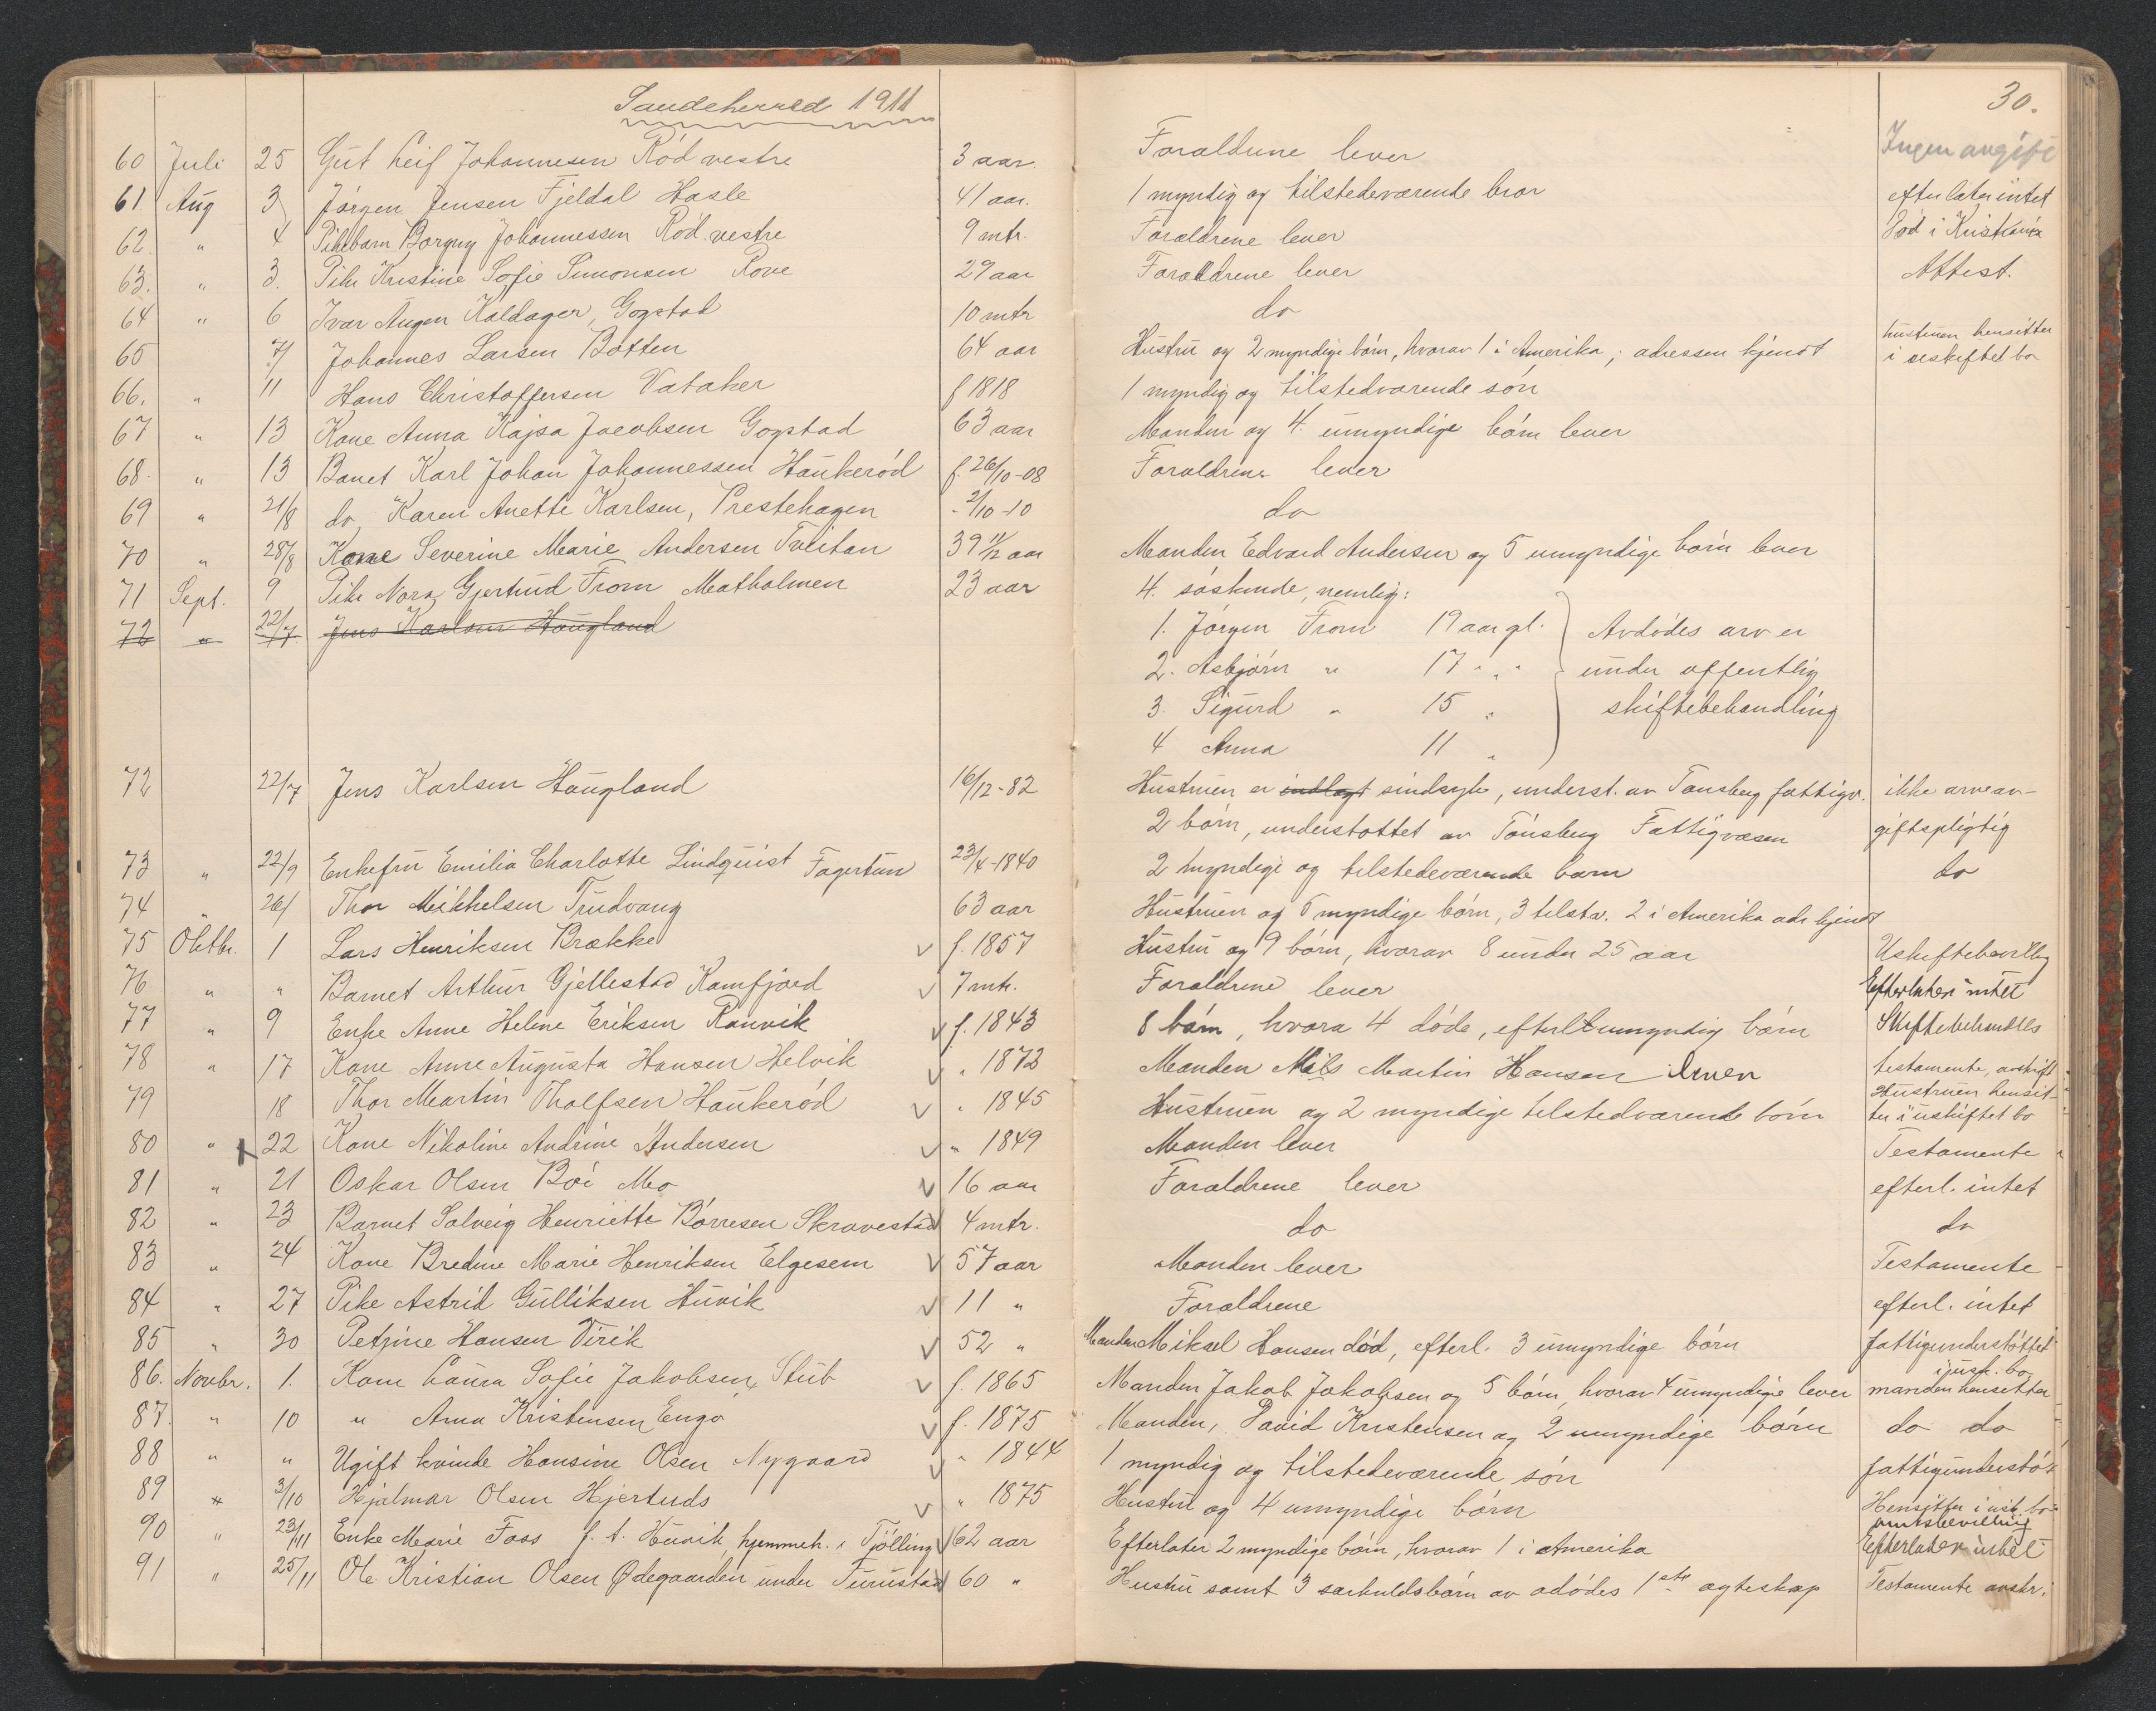 Sandeherred 1911
30.
60 Juli 25 Gut Leif Johannesen Rød vestre 3 aar. Forældrene lever Ingen avgift
61. Aug 3 Jørgen Jensen Fjeldal Hasle 41 aar. 1 myndig og tilstedeværende bror efterlater intet
62. " 4 Pikebarn Borgny Johannessen Rød vestre 9 mtr. Forældrene lever Død i Kristiania
63. " 3. Pike Kristine Sofie Simonsen Rove 29 aar Forældrene lever Attest.
64 " 6 Ivar Augen Kaldager, Gogstad 10 mtr do
65 7/ Johannes Larsen Botten 64 aar Hustru og 2 myndige børn, hvorav 1 i Amerika; adressen kjendt hustruen hensitter
i uskiftet bo
66. " 11 Hans Christoffersen Vataker f 1818 1 myndig og tilstedværende søn
67 " 13 Kone Anna Kajsa Jacobsen Gogstad 63 aar Manden og 4 umyndige børn lever
68. " 13 Banet Karl Johan Johannessen Haukerød f. 26/10-08 Forældrene lever
69 " 21/8 do Karen Anette Karlsen, Prestehagen - 2/10-10 do
70 " 28/8 Kone Severine Marie Andersen Tveitan 39 11/12 aar Manden Edvard Andersen og 5 umyndige børn lever
71 Sept. 9 Pike Nora Gjertrud From Matholmen 23 aar 4. søskende, nemlig:
72 " 22/7 Jens Karlsen Haugland 1. Jørgen From 19 aar gl. Avdødes arv er
2. Asbjørn " 17 " " under offentlig
3. Sigurd " 15 " skiftebehandling
4 Anna 11 "
72 22/7 Jens Karlsen Haugland 16/12-82 Hustruen er indlagt sindsyk, underst. av Tønsberg fattigv. ikke arveav-
2 børn, understøttet av Tønsberg Fattigvæsen giftspligtig
73 " 22/9 Enkefru Emilia Charlotte Lindquist Fagertun 23/4-1840 2 myndige og tilstedeværende barn do
74 " 26/ Thor Mikkelsen Trudvang 63 aar Hustruen og 5 myndige børn, 3 tilstv. 2 i Amerika adr kjendt
75 Oktbr. 1 Lars Henriksen Brække f. 1857 Hustru og 9 børn, hvorav 8 under 25 aar Uskiftebevillg
76 " " Barnet Arthur Gjellestad Kamfjord 7 mtr. Forældrene lever Efterlater intet
77 " 9 Enke Anne Helene Eriksen Ranvik f. 1843 8 børn, hvora 4 døde, efterl umyndig børn Skiftebehandles
78 " 17 Kone Anne Augusta Hansen Helvik " 1872 Manden Nils Martin Hansen lever testamente, avskrift
79 18 Thor Martin Tholfsen Haukerød " 1845 Hustruen og 2 myndige tilstedværende børn Hustruen hensit-
ter i uskiftet bo
80 " 22 Kone Nikoline Andrine Andersen " 1849 Manden lever Testamente
81 " 21 Oskar Olsen Bøe Mo 16 aar Forældrene lever efterl. intet
82 " 23 Barnet Solveig Henriette Børresen Skravestad 4 mtr. do do
83 " 24 Kone Bredine Marie Henriksen Elgesem 57 aar Manden lever Testamente
84 " 27 Pike Astrid Gulliksen Huvik 11 " Forældrene efterl. intet
85 " 30 Petrine Hansen Virik 52 " Manden Miksel Hansen død, efterl. 3 umyndige børn fattigunderstøttet
86. Novbr. 1. Kone Laura Sofie Jakobsen, Stub f. 1865 Manden Jakob Jakobsen og 5 børn, hvorav 4 umyndige lever i usk. bo
manden hensetter
87. " 10 " Anna Kristensen Engø f. 1875 Manden, David Kristensen og 2 umyndige børn do do
88 " " Ugift kvinde Hansine Olsen Nygaard " 1844 1 myndig og tilstedeværende søn fattigunderstøt
89 " 3/10 Hjalmar Olsen Hjertnes " 1875 Hustru og 4 umyndige børn Hensitter i usk. bo
amtsbevilling
90 " 23/11 Enke Marie Foss f. t. Huvik, hjemmeh. i Tjølling 62 aar Efterlater 2 myndige børn, hvorav 1 i Amerika Efterlater intet
91 " 25/11 Ole Kristian Olsen Ødegaarden under Furustad 60 " Hustru samt 3 særkuldsbørn av adødes 1ste ægteskap Testamente avskr.